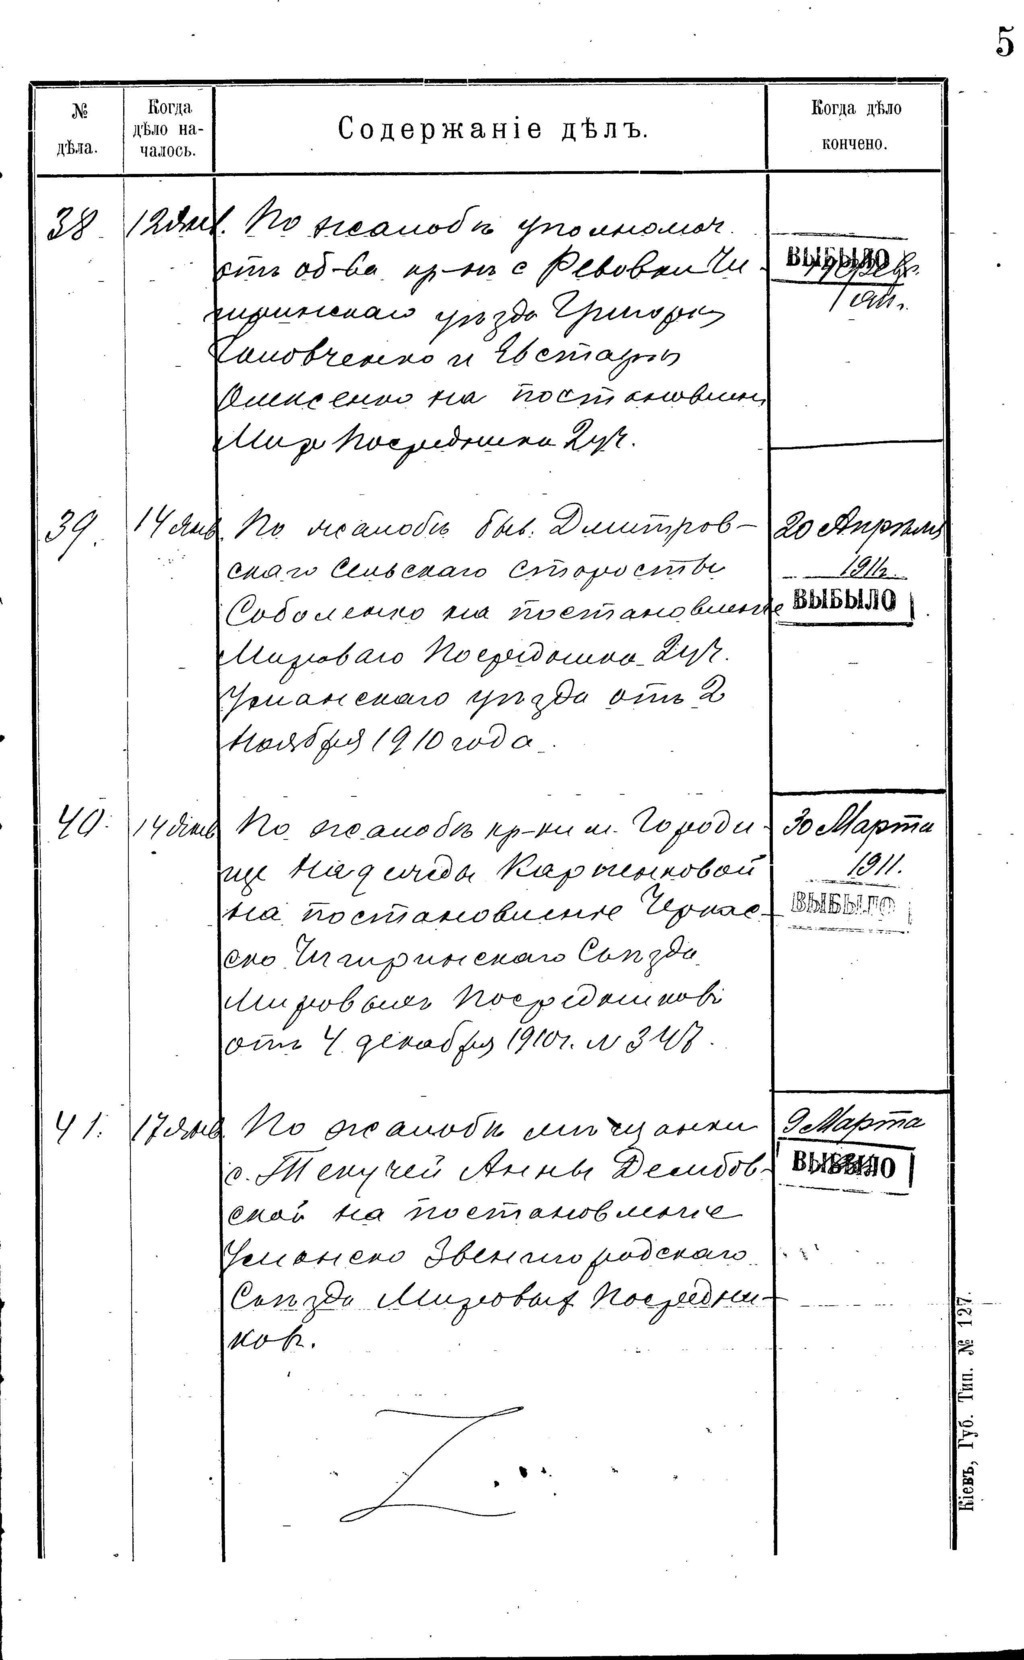 5
№ дѣла.
Когда дѣло началось.
Содержаніе дѣлъ.
Когда дѣло кончено.
38
12 Янв.
По жалобѣ уполномоч.
отъ об-ва кр-нъ с Ревовки Чи-
гиринскаго уѣзда Григорія
и Евстафія
Олексенко на постановлен
Мир Посредника 2 уч.
ВЫБЫЛО
39.
14 Янв.
По жалобѣ быв. Дмитров-
скаго Сельскаго Старосты
Соболенко на постановленіе
Мироваго Посредника 2 уч.
Уманскаго уѣзда отъ 2
Ноября 1910 года.
20 Апрѣля
1911г.
ВЫБЫЛО
40.
14 Янв
По жалобѣ кр-ки м. Городи-
ще Надежды Карпенковой
на постановленіе Черкас-
ско Чигиринскаго Съѣзда
Мировыхъ Посредниковъ
отъ 4 декабря 1910г. № 347.
30 Марта
1911.
ВЫБЫЛО
41.
17 Янв.
По жалобѣ мѣщанки
с. Текучей Анны Дембов-
ской на постановленіе
Уманско Звенигородскаго
Съѣзда Мировых Посредни-
ковъ.
9 Марта
ВЫБЫЛО
Кіевъ, Губ. Тип. № 127.